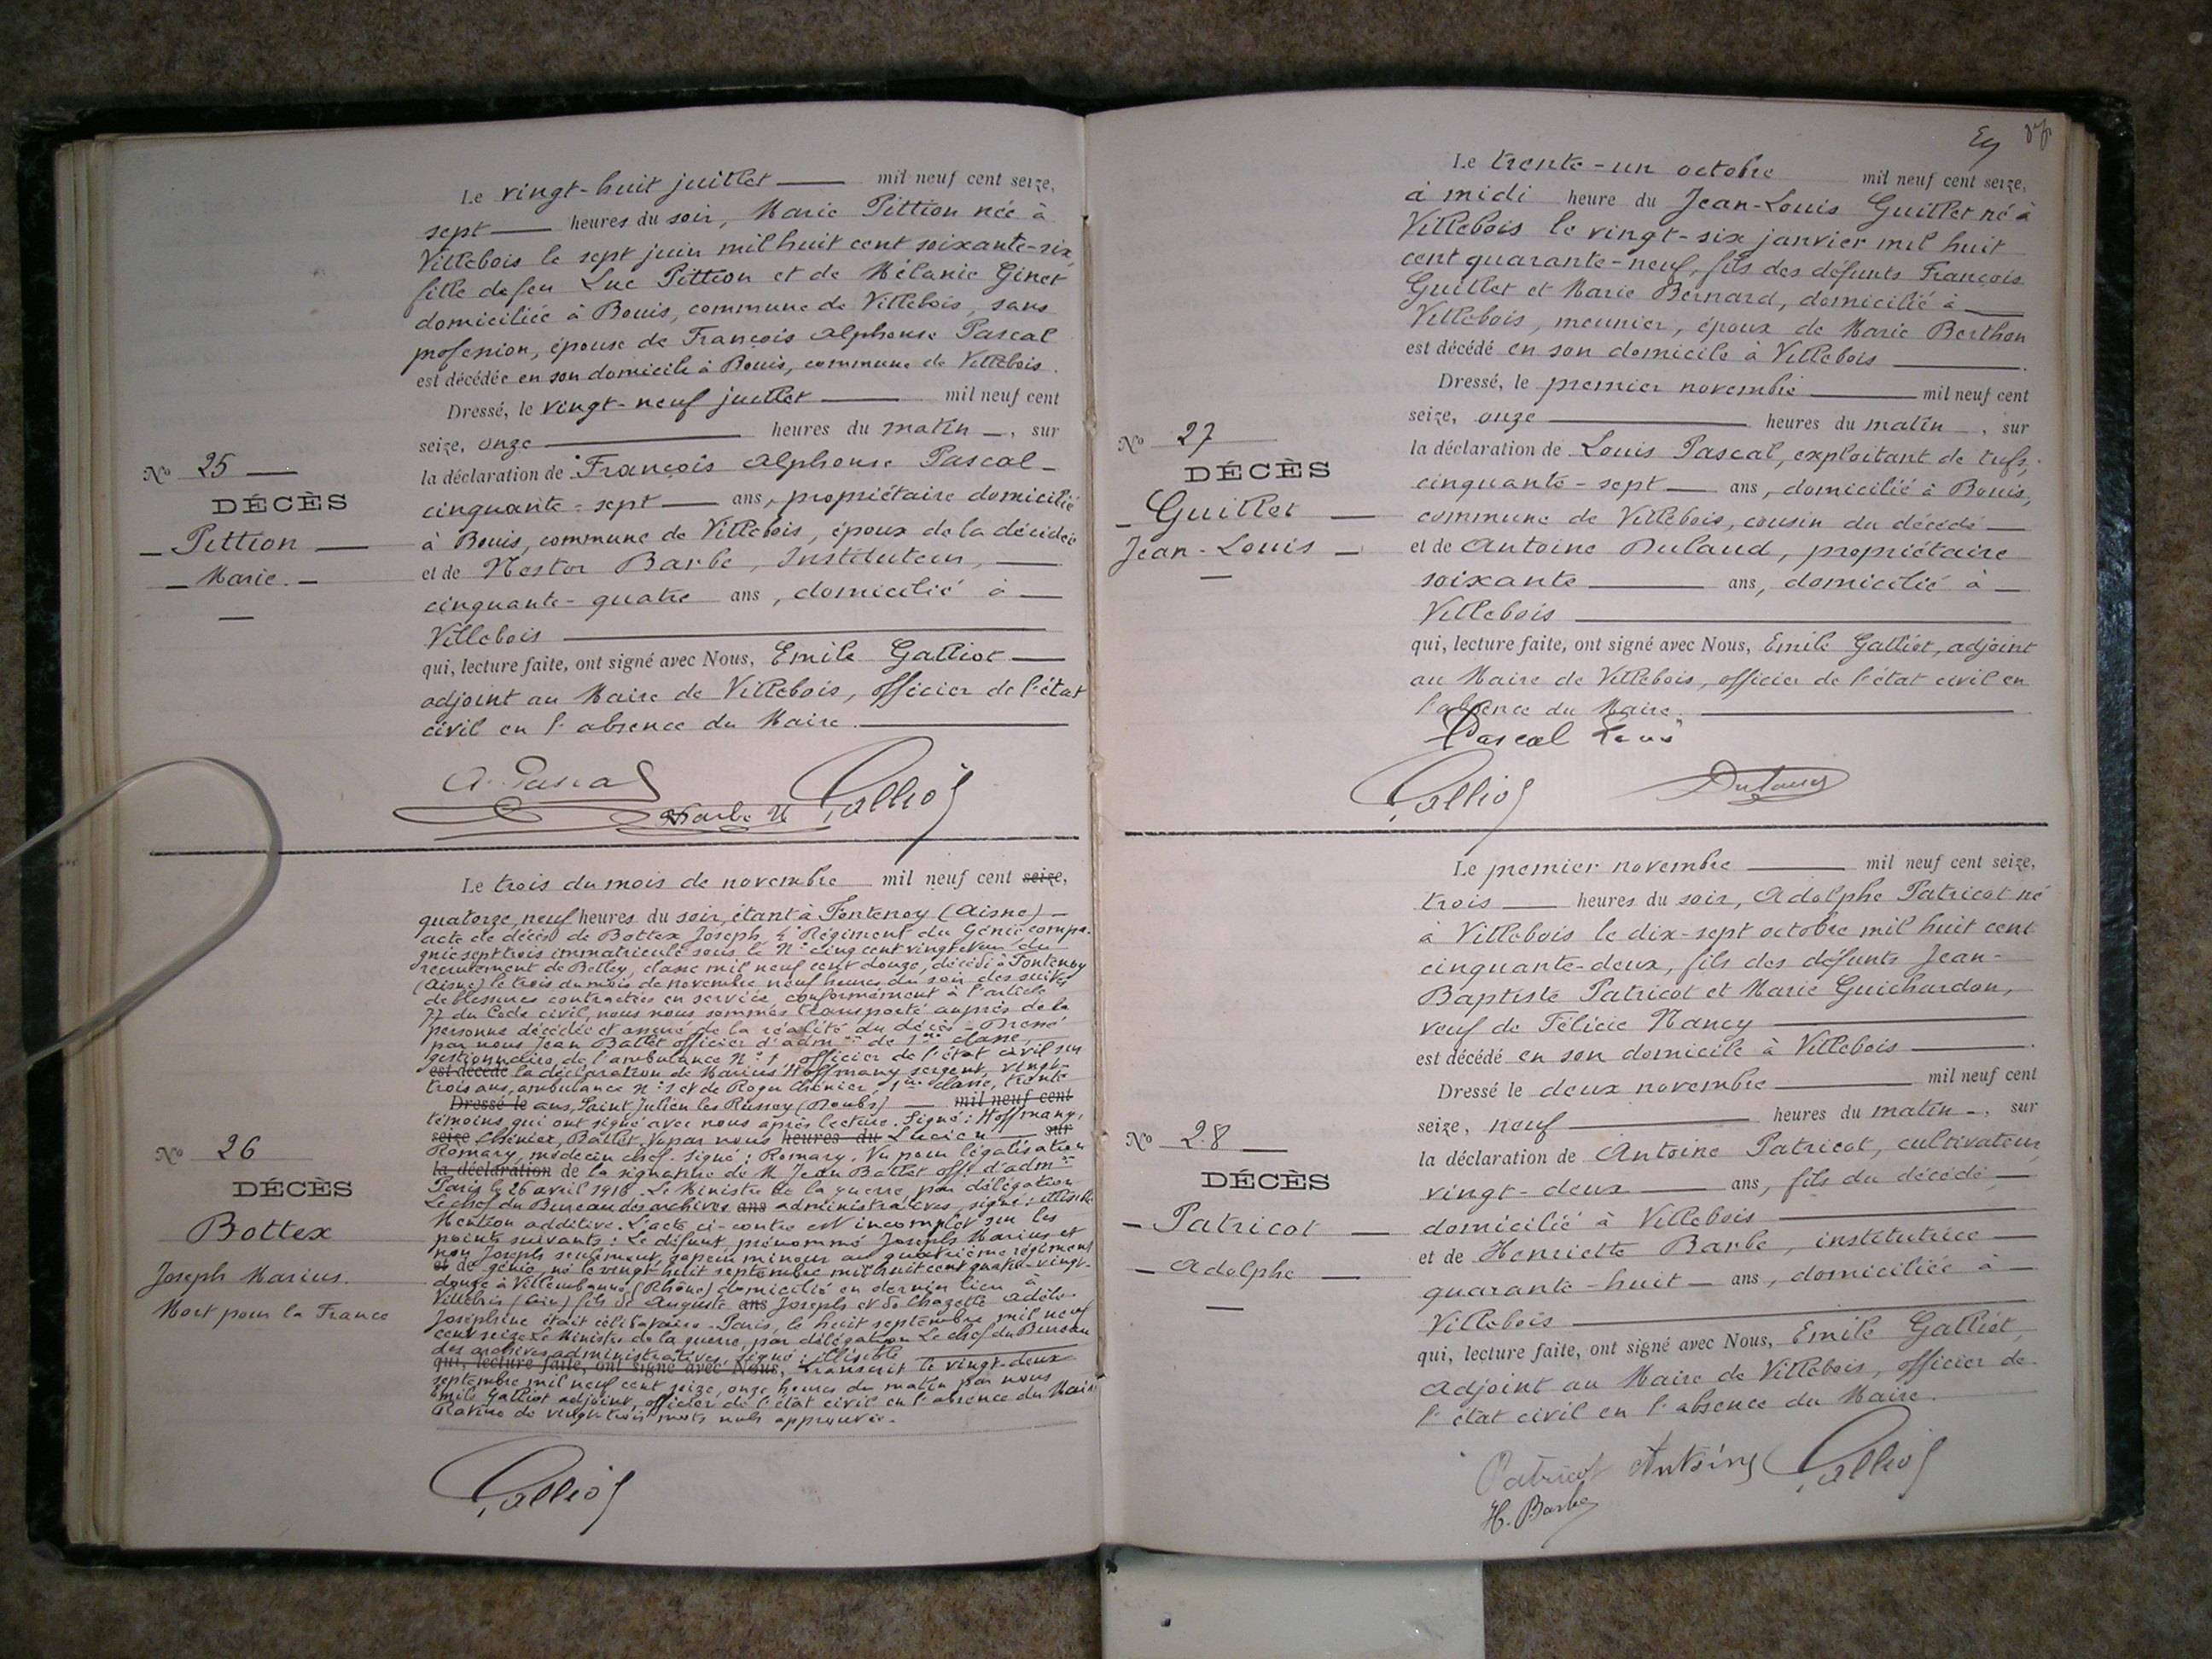 Le vingt-huit juillet mil neuf cent seize,
sept heures du soir, Marie Pittion née à
Villebois le sept juin mil huit cent soixante-six,
fille de feu Luc Pittion et de Mélanie Ginet
domiciliée à Bouis, commune de Villebois, sans
profession, épouse de François Alphonse Pascal
est décédée en son domicile à Bouis, commune de Villebois.
Dressé, le vingt-neuf juillet mil neuf cent
seize, onze heures du matin, sur
la déclaration de François Alphonse Pascal
cinquante-sept ans, propriétaire domicilié
à Bouis, commune de Villebois, époux de la décédée
et de Nestor Barbe, Instituteur,
cinquante-quatre ans, domicilié à
Villebois
qui, lecture faite, ont signé avec Nous, Emile Galliot
adjoint au Maire de Villebois, officier de l'état
civil en l'absence du Maire.
N° 25
DÉCÈS
Pittion
Marie.
A. Pascal
Barbe N Galliot
Le trois du mois de novembre mil neuf cent seize,
quatorze, neuf heures du soir, étant à Fontenoy (Aisne)
acte de décès de Bottex Joseph, 4e Régiment du Génie compa-
gnie sept trois immatriculé sous le N° cinq cent vingt et un du
recrutement de Belley, classe mil neuf cent douze, décédé à Fontenoy
(Aisne) le trois du mois de novembre neuf heures du soir des suites
de blessures contractées en service, conformément à l'article
77 du Code civil, nous nous sommes transporté auprès de la
personne décédée et assuré de la réalité du décès - Dressé
par nous Jean Ballet officier d'adm on de 1ère classe,
gestionnaire de l'ambulance N° 1, officier de l'état civil sur
est décédé la déclaration de Marius Hoffmany sergent, vingt-
trois ans, ambulance N° 1 et de Roger Chénier, 1ère classe, trente
Dressé le ans, Saint Julien les Russey (Doubs) mil neuf cent
témoins qui ont signé avec nous après lecture. Signé: Hoffmany,
seize Chénier, Ballet. Vu par nous heures du Lucien sur
Romary, médecin chef. signé: Romary. Vu pour légalisation
la déclaration de la signature de M Jean Ballet off. d'adm on
Paris le 26 avril 1916. Le Ministre de la guerre, par délégation
Le chef du Bureau des archives ans administratives, signé: illisible
Mention additive. L'acte ci-contre est incomplet sur les
points suivants: Le défunt, prénommé Joseph Marius et
non Joseph seulement, sapeur mineur au quatrième régiment
et de génie, né le vingt huit septembre mil huit cent quatre-vingt-
douze à Villeurbanne (Rhône) domicilié en dernier lieu à
Villebois (Ain) fils de Auguste ans Joseph et de Chazette Adèle
Joséphine était célibataire - Paris, le huit septembre mil neuf
cent seize Le Ministre de la guerre, par délégation Le chef du Bureau
des archives administratives, signé: illisible
qui, lecture faite, ont signé avec Nous, Transcrit le vingt-deux
septembre mil neuf cent seize, onze heures du matin par nous
Emile Galliot adjoint, officier de l'état civil en l'absence du Maire
de vingt trois mots nuls approuvée.
N° 26
DÉCÈS
Bottex
Joseph Marius.
Mort pour la France
Galliot
Le trente-un octobre mil neuf cent seize,
à midi heure du Jean-Louis Guillet né à
Villebois le vingt-six janvier mil huit
cent quarante-neuf, fils des défunts François
Guillet et Marie Bernard, domicilié à
Villebois, meunier, époux de Marie Berthon
est décédé en son domicile à Villebois
Dressé, le premier novembre mil neuf cent
seize, onze heures du matin, sur
la déclaration de Louis Pascal, exploitant de tufs,
cinquante-sept ans, domicilié à Bouis,
commune de Villebois, cousin du décédé
et de Antoine Dulaud, propriétaire
soixante ans, domicilié à
Villebois
qui, lecture faite, ont signé avec Nous, Emile Galliot, adjoint
au Maire de Villebois, officier de l'état civil en
l'absence du Maire.
N° 27
DÉCÈS
Guillet
Jean-Louis
Pascal Louis
Galliot Dulaud
Le premier novembre mil neuf cent seize,
trois heures du soir, Adolphe Patricot né
à Villebois le dix-sept octobre mil huit cent
cinquante-deux, fils des défunts Jean-
Baptiste Patricot et Marie Guichardon,
veuf de Félicie Nancy
est décédé en son domicile à Villebois
Dressé le deux novembre mil neuf cent
seize, neuf heures du matin, sur
la déclaration de Antoine Patricot, cultivateur
vingt-deux ans, fils du décédé
domicilié à Villebois
et de Henriette Barbe, institutrice
quarante-huit ans, domiciliée à
Villebois
qui, lecture faite, ont signé avec Nous, Emile Galliot,
adjoint au Maire de Villebois, officier de
l'état civil en l'absence du Maire.
N° 28
DÉCÈS
Patricot
Adolphe
Patricot Antoine Galliot
H. Barbe